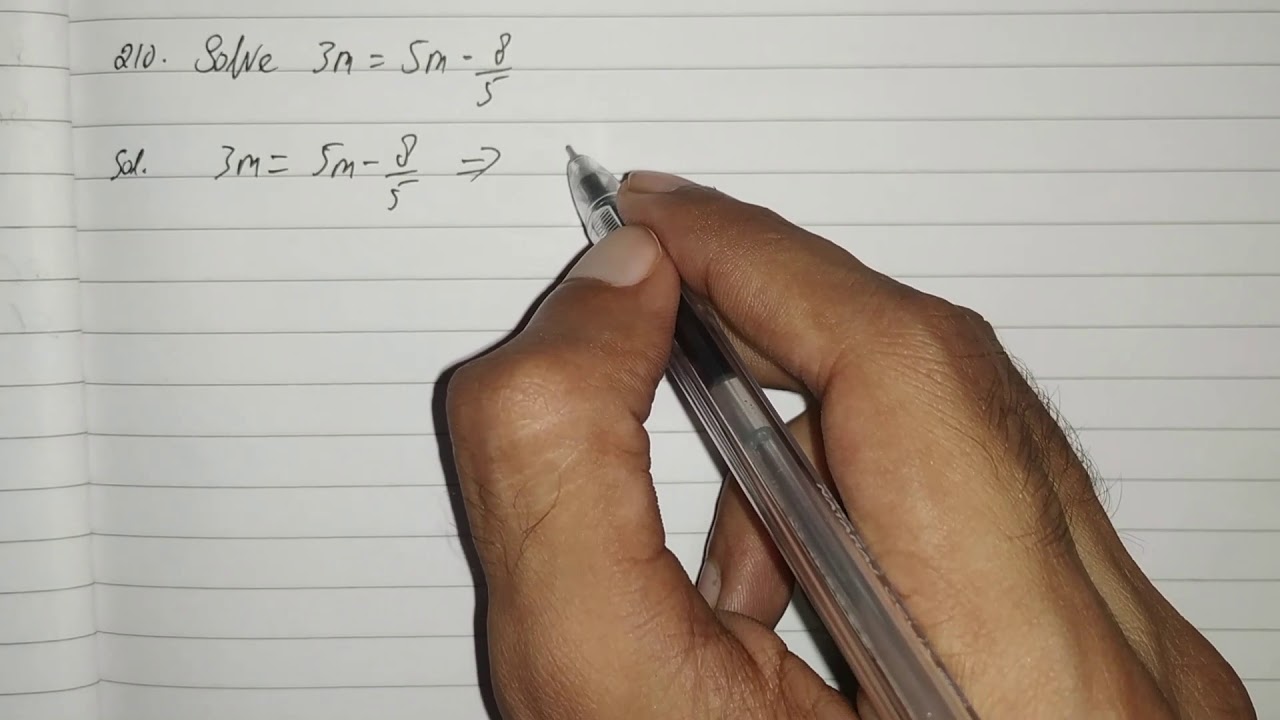 210. Solve 3m = 5m - 8/5
Sol. 3m = 5m - 8/5 ⇒